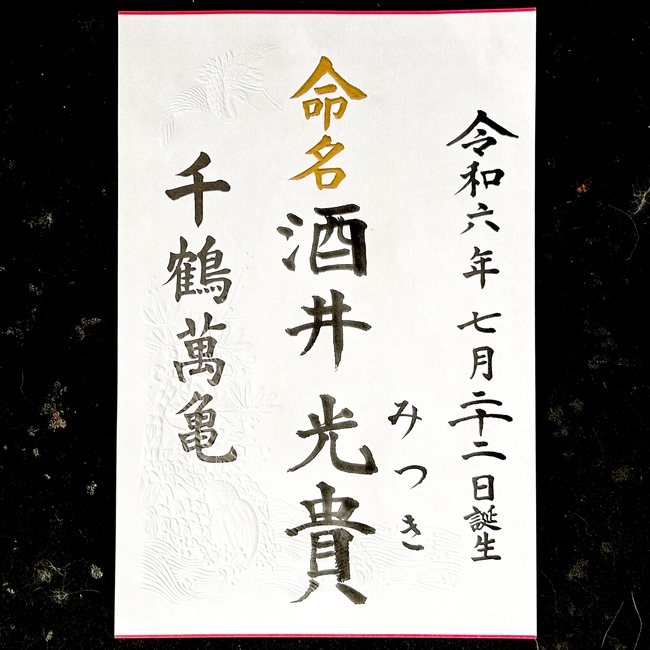 令和六年 七月二十二日誕生
みつき
命名
酒井 光貴
千鶴萬亀